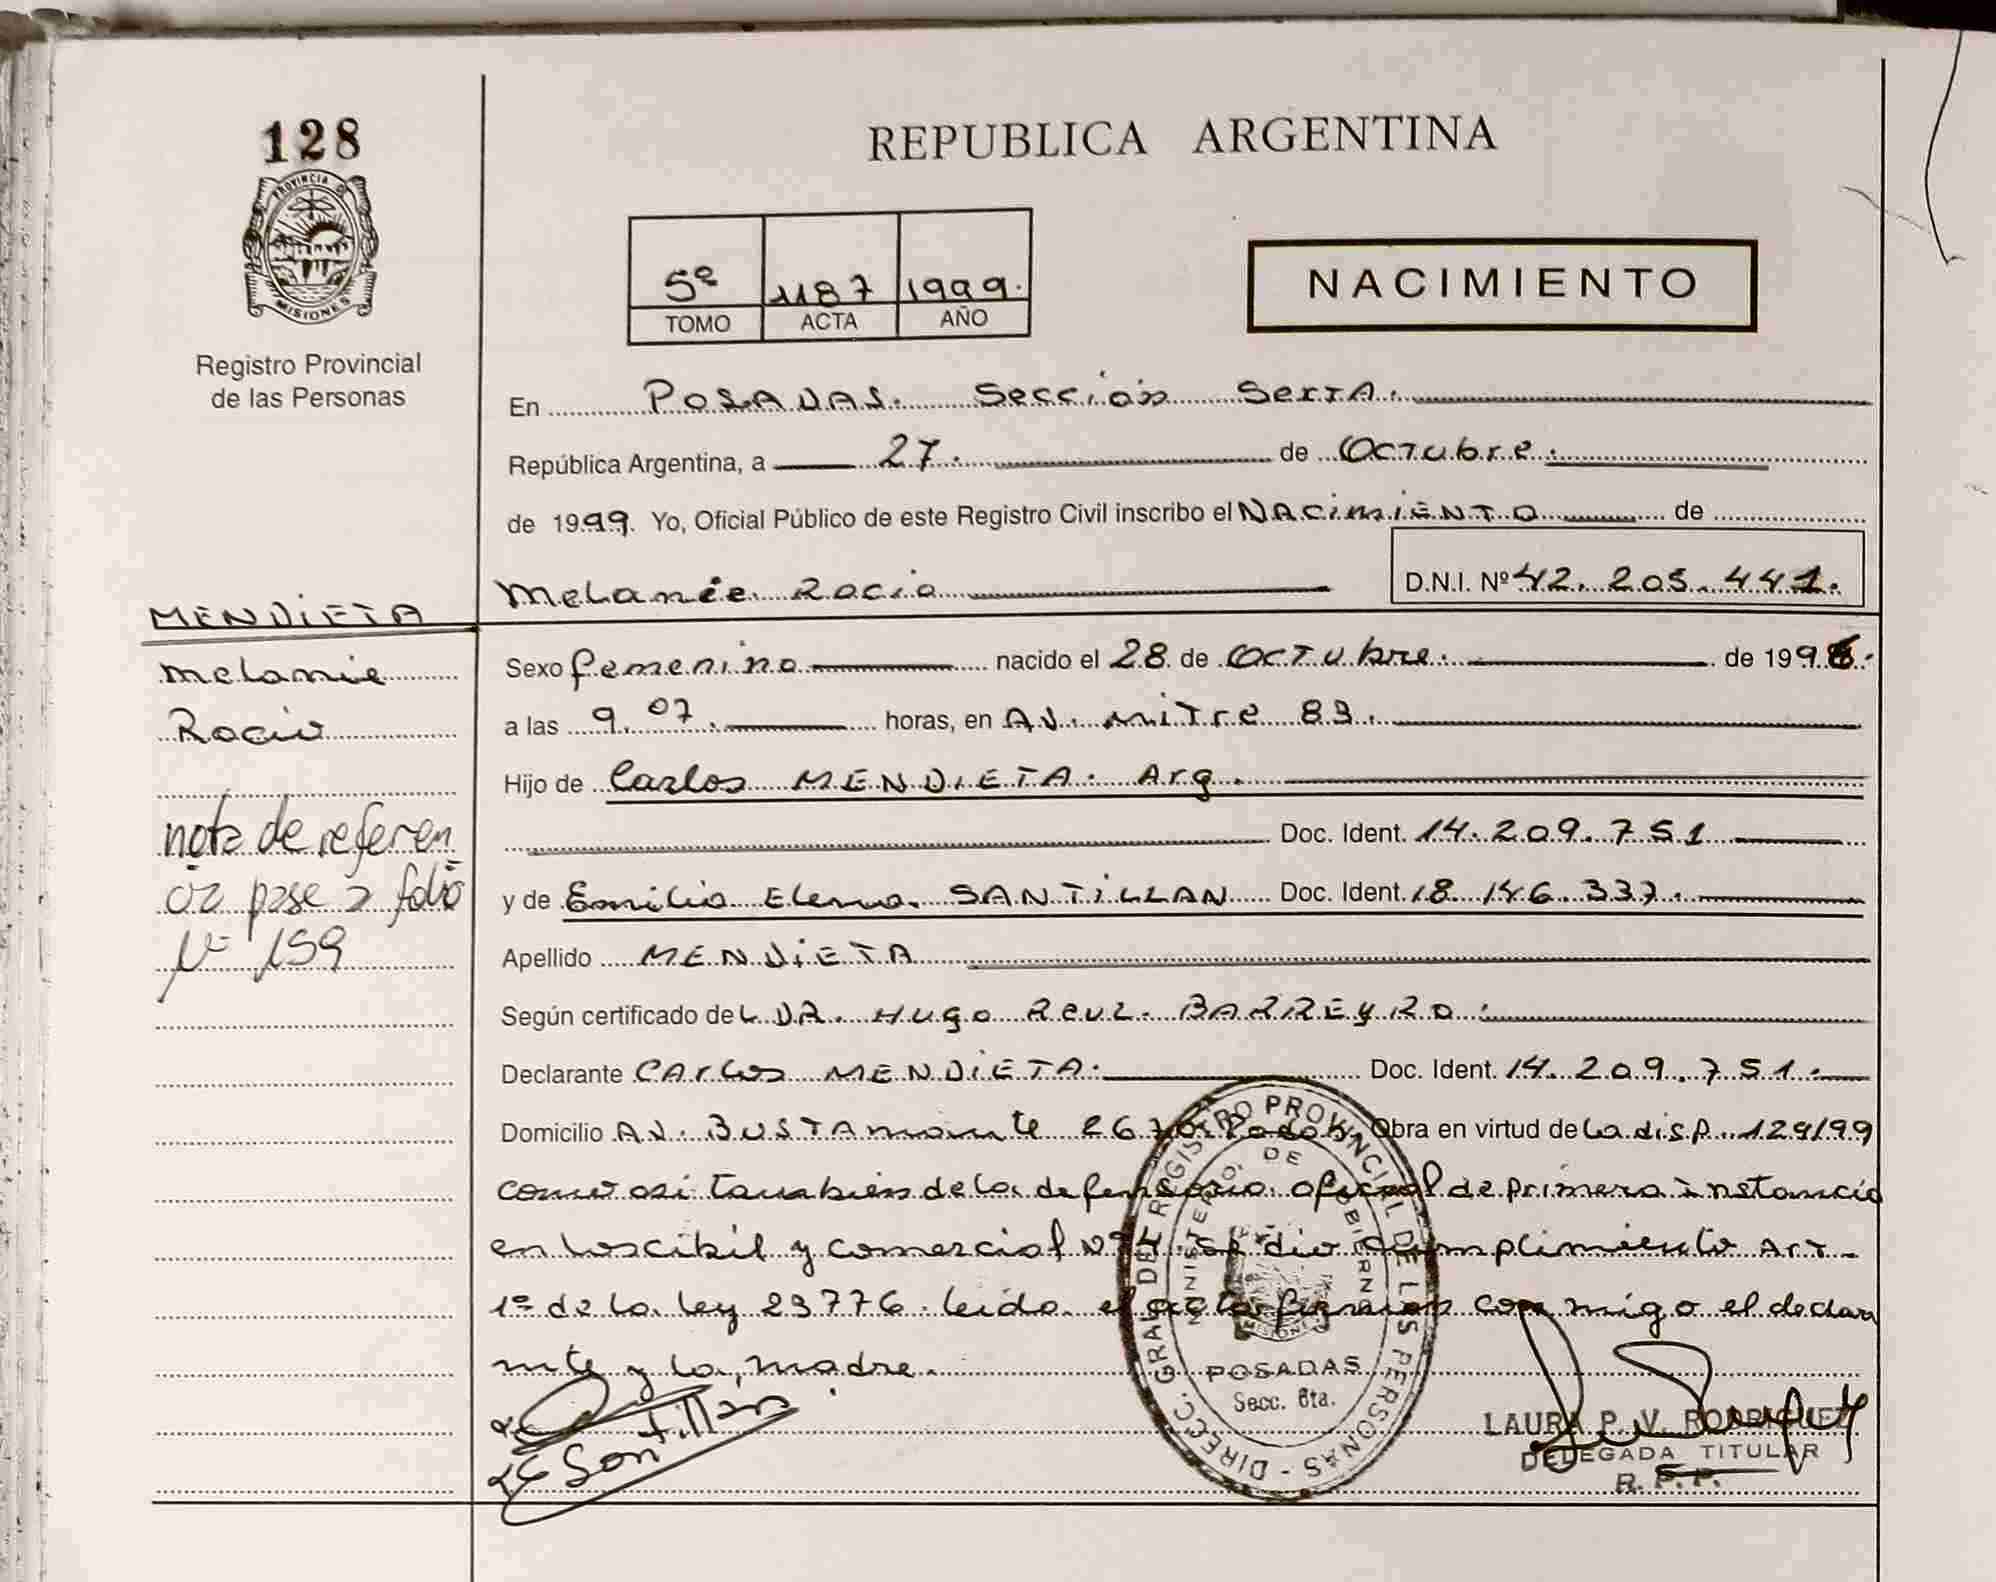 128
PROVINCIA DE
MISIONES
Registro Provincial
de las Personas
REPUBLICA ARGENTINA
5º 1187 1999.
TOMO ACTA AÑO
NACIMIENTO
En POSADAS. Sección Sexta.
República Argentina, a 27. de Octubre.
de 1999. Yo, Oficial Público de este Registro Civil inscribo el Nacimiento de
Melanie Rocio D.N.I. Nº 42.205.441.
MENDIETA
Melanie
Rocio
nota de referen
cia pase a folio
Nº 159
Sexo femenino nacido el 28 de Octubre. de 199
a las 9.07. horas, en AV. Mitre 83.
Hijo de Carlos MENDIETA. Arg.
Doc. Ident. 14.209.751
y de Emilia Elena. SANTILLAN Doc. Ident. 18.146.337.
Apellido MENDIETA
Según certificado de L DR. Hugo Reul. BARREYRO.
Declarante Carlos MENDIETA. Doc. Ident. 14.209.751.
Domicilio AV. BUSTAmante Obra en virtud de la disp. 129/99
como asi tambien de la defensoria oficial de primera instancia
en lo scibil y comercial se dio cumplimiento Art
1º de la ley 23776. leida el acta firman con migo el declara
nte y la madre.
E Santillan
DIRECC. GRAL DEL REGISTRO PROVINCIAL DE LAS PERSONAS
MINISTERIO DE GOBIERNO
MISIONES
POSADAS
Secc. 6ta.
LAURA P. V. RODRIGUEZ
DELEGADA TITULAR
R. P. P.